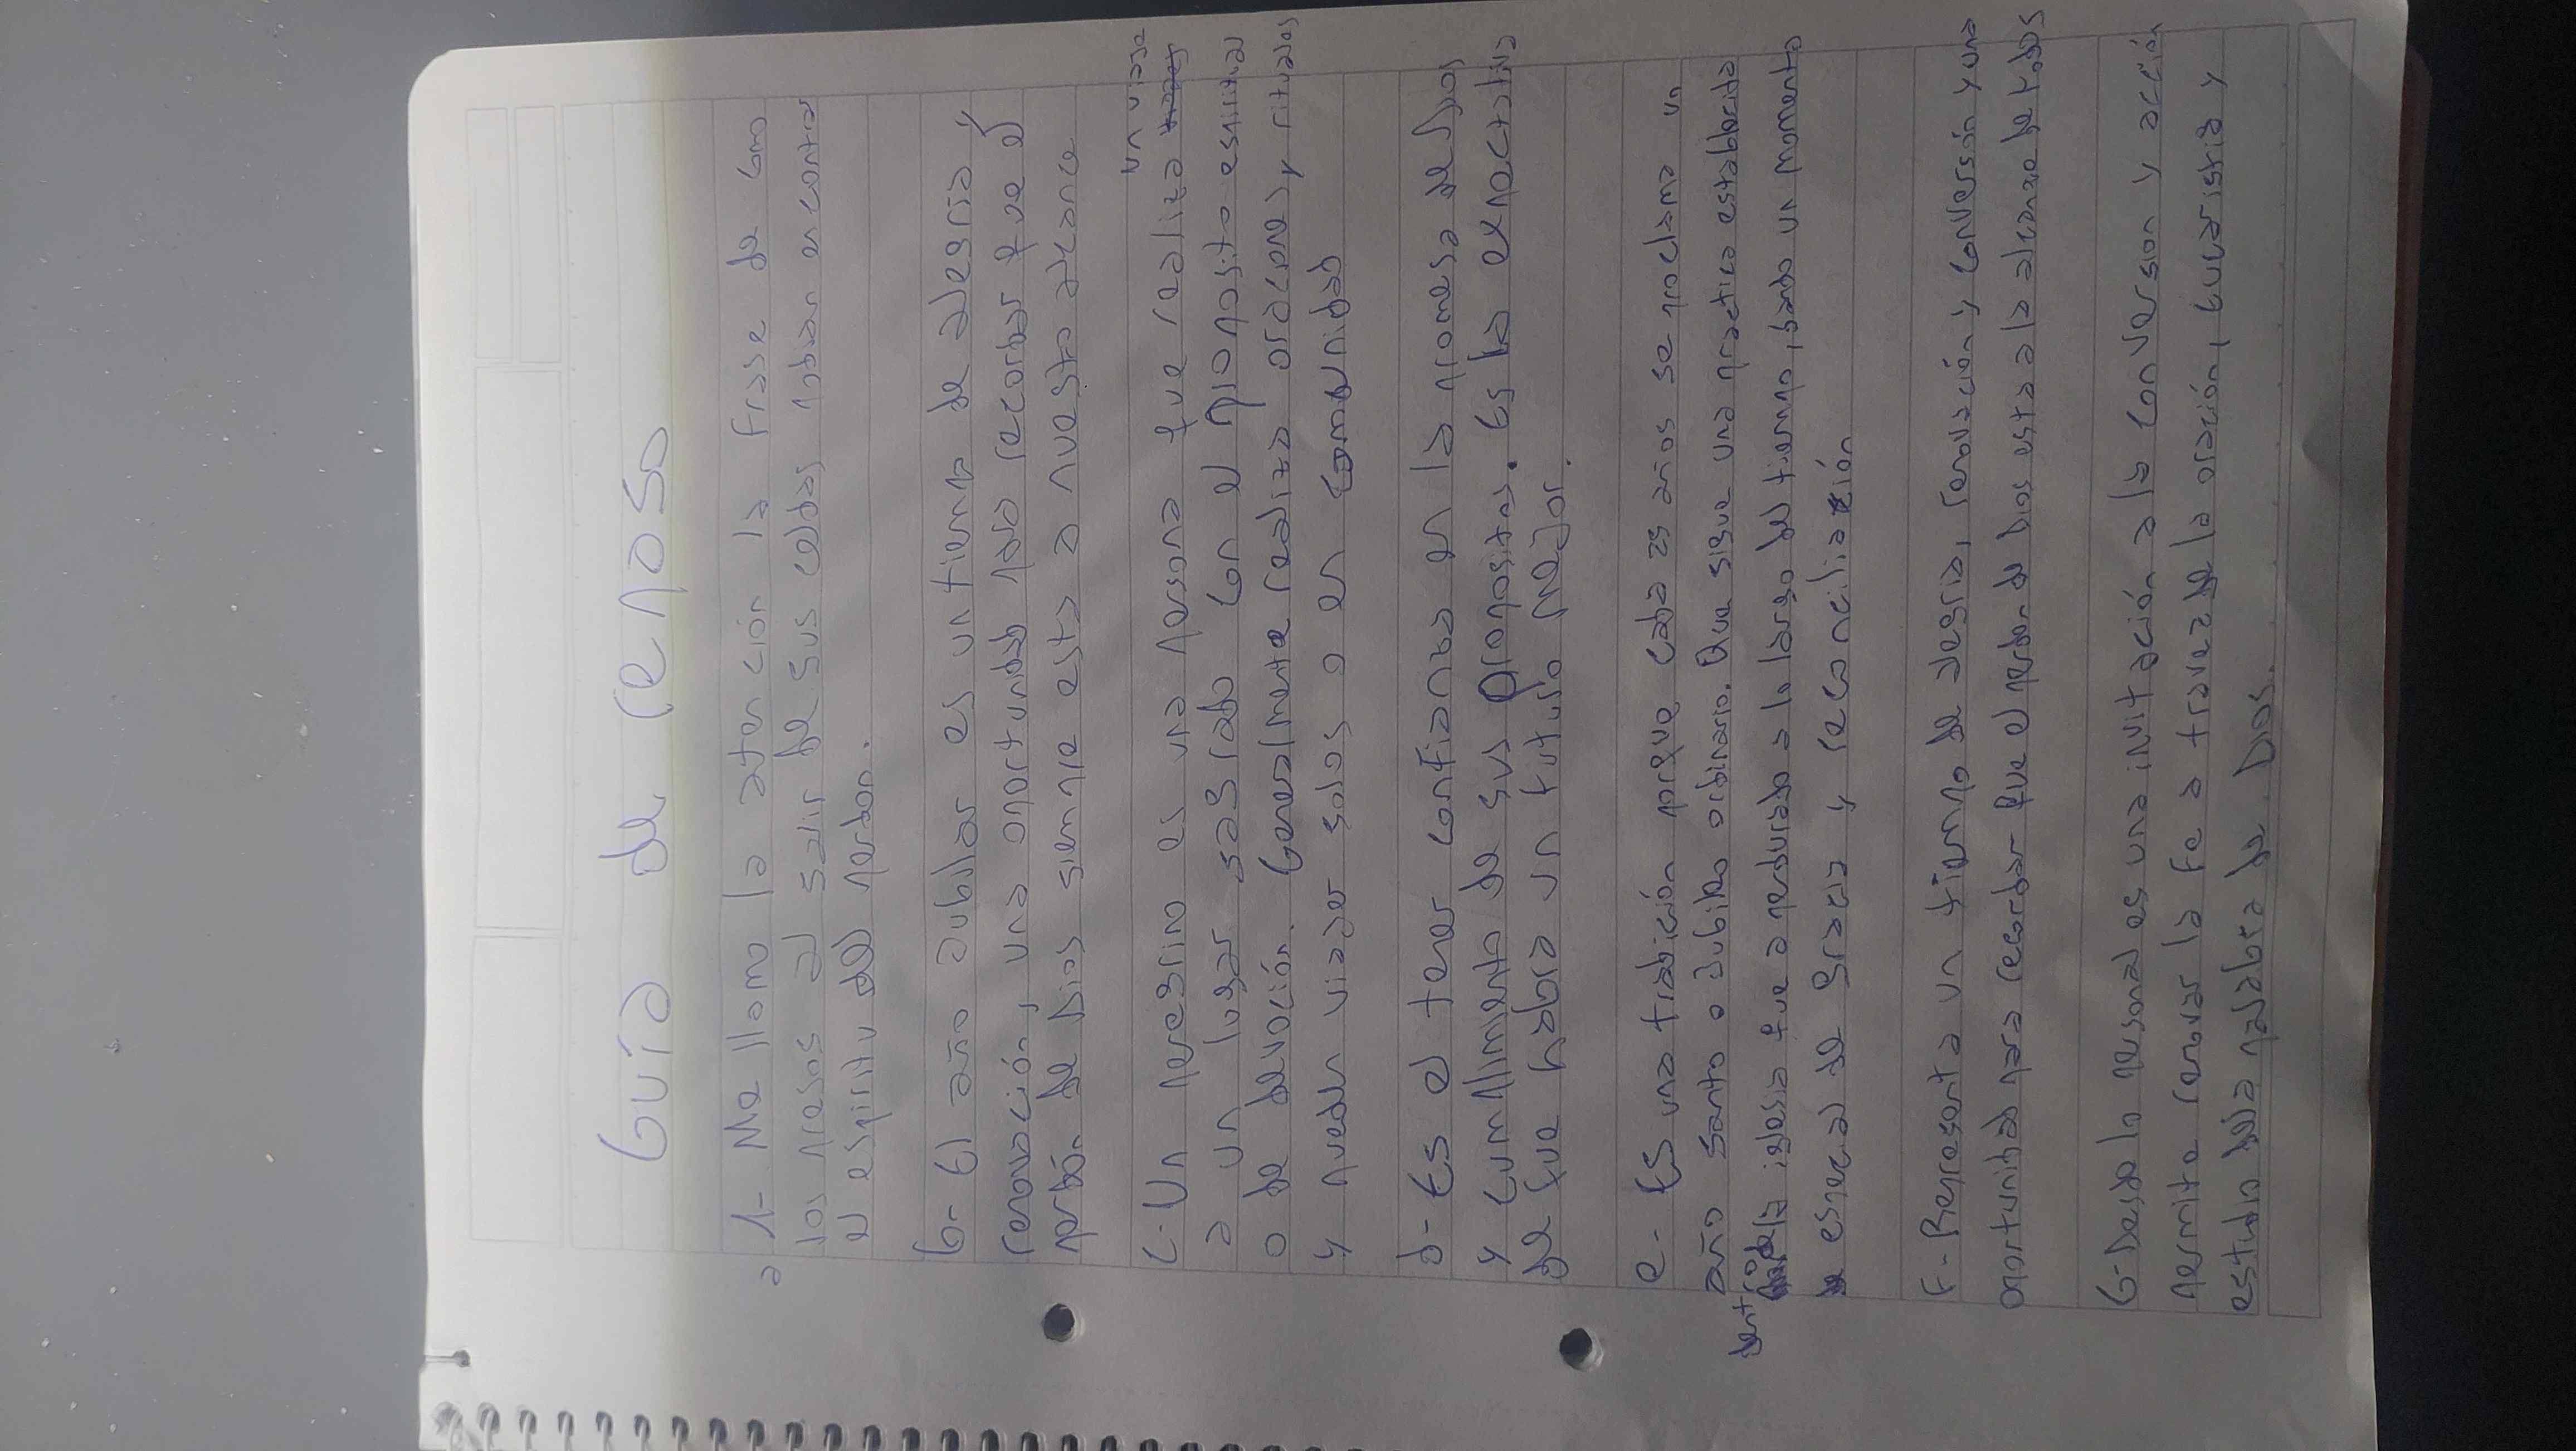 Guía de repaso
a 1- Me llamo la atención la frase de como
los presos al salir de sus celdas podian encontrar
el espiritu del perdon.
b- El año jubilar es un tiempo de alegria y
renovación, una oportunidad para recordar que el
perdón de Dios siempre esta a nuesto alcance
C- Un peregrino es una persona que realiza un viaje
a un lugar sagrado con el proposito espiritual
o de devoción. Generalmente realiza oraciones y rituales
y pueden viajar solos o en comunidad
d- Es el tener confianza en la promesa de Dios
y cumplimiento de sus propositos. Es la expectativa
de que habra un futuro mejor.
e- Es una tradición porque cada 25 años se proclama un
año santo o Jubileo ordinario. Que sigue una practica establecida
dentro de la iglesia que a perdurado a lo largo del tiempo, dando un momento
de especial de gracia y reconciliación
F- Representa un tiempo de alegria, renovación y conversión y una
oportunidad para recordar que el perdon de Dios esta a la alcance de todos
G- Desde lo personal es una invitación a la conversion y acción
permite renovar la fe a travez de la oración, eucaristia y
estudio de la palabra de Dios.